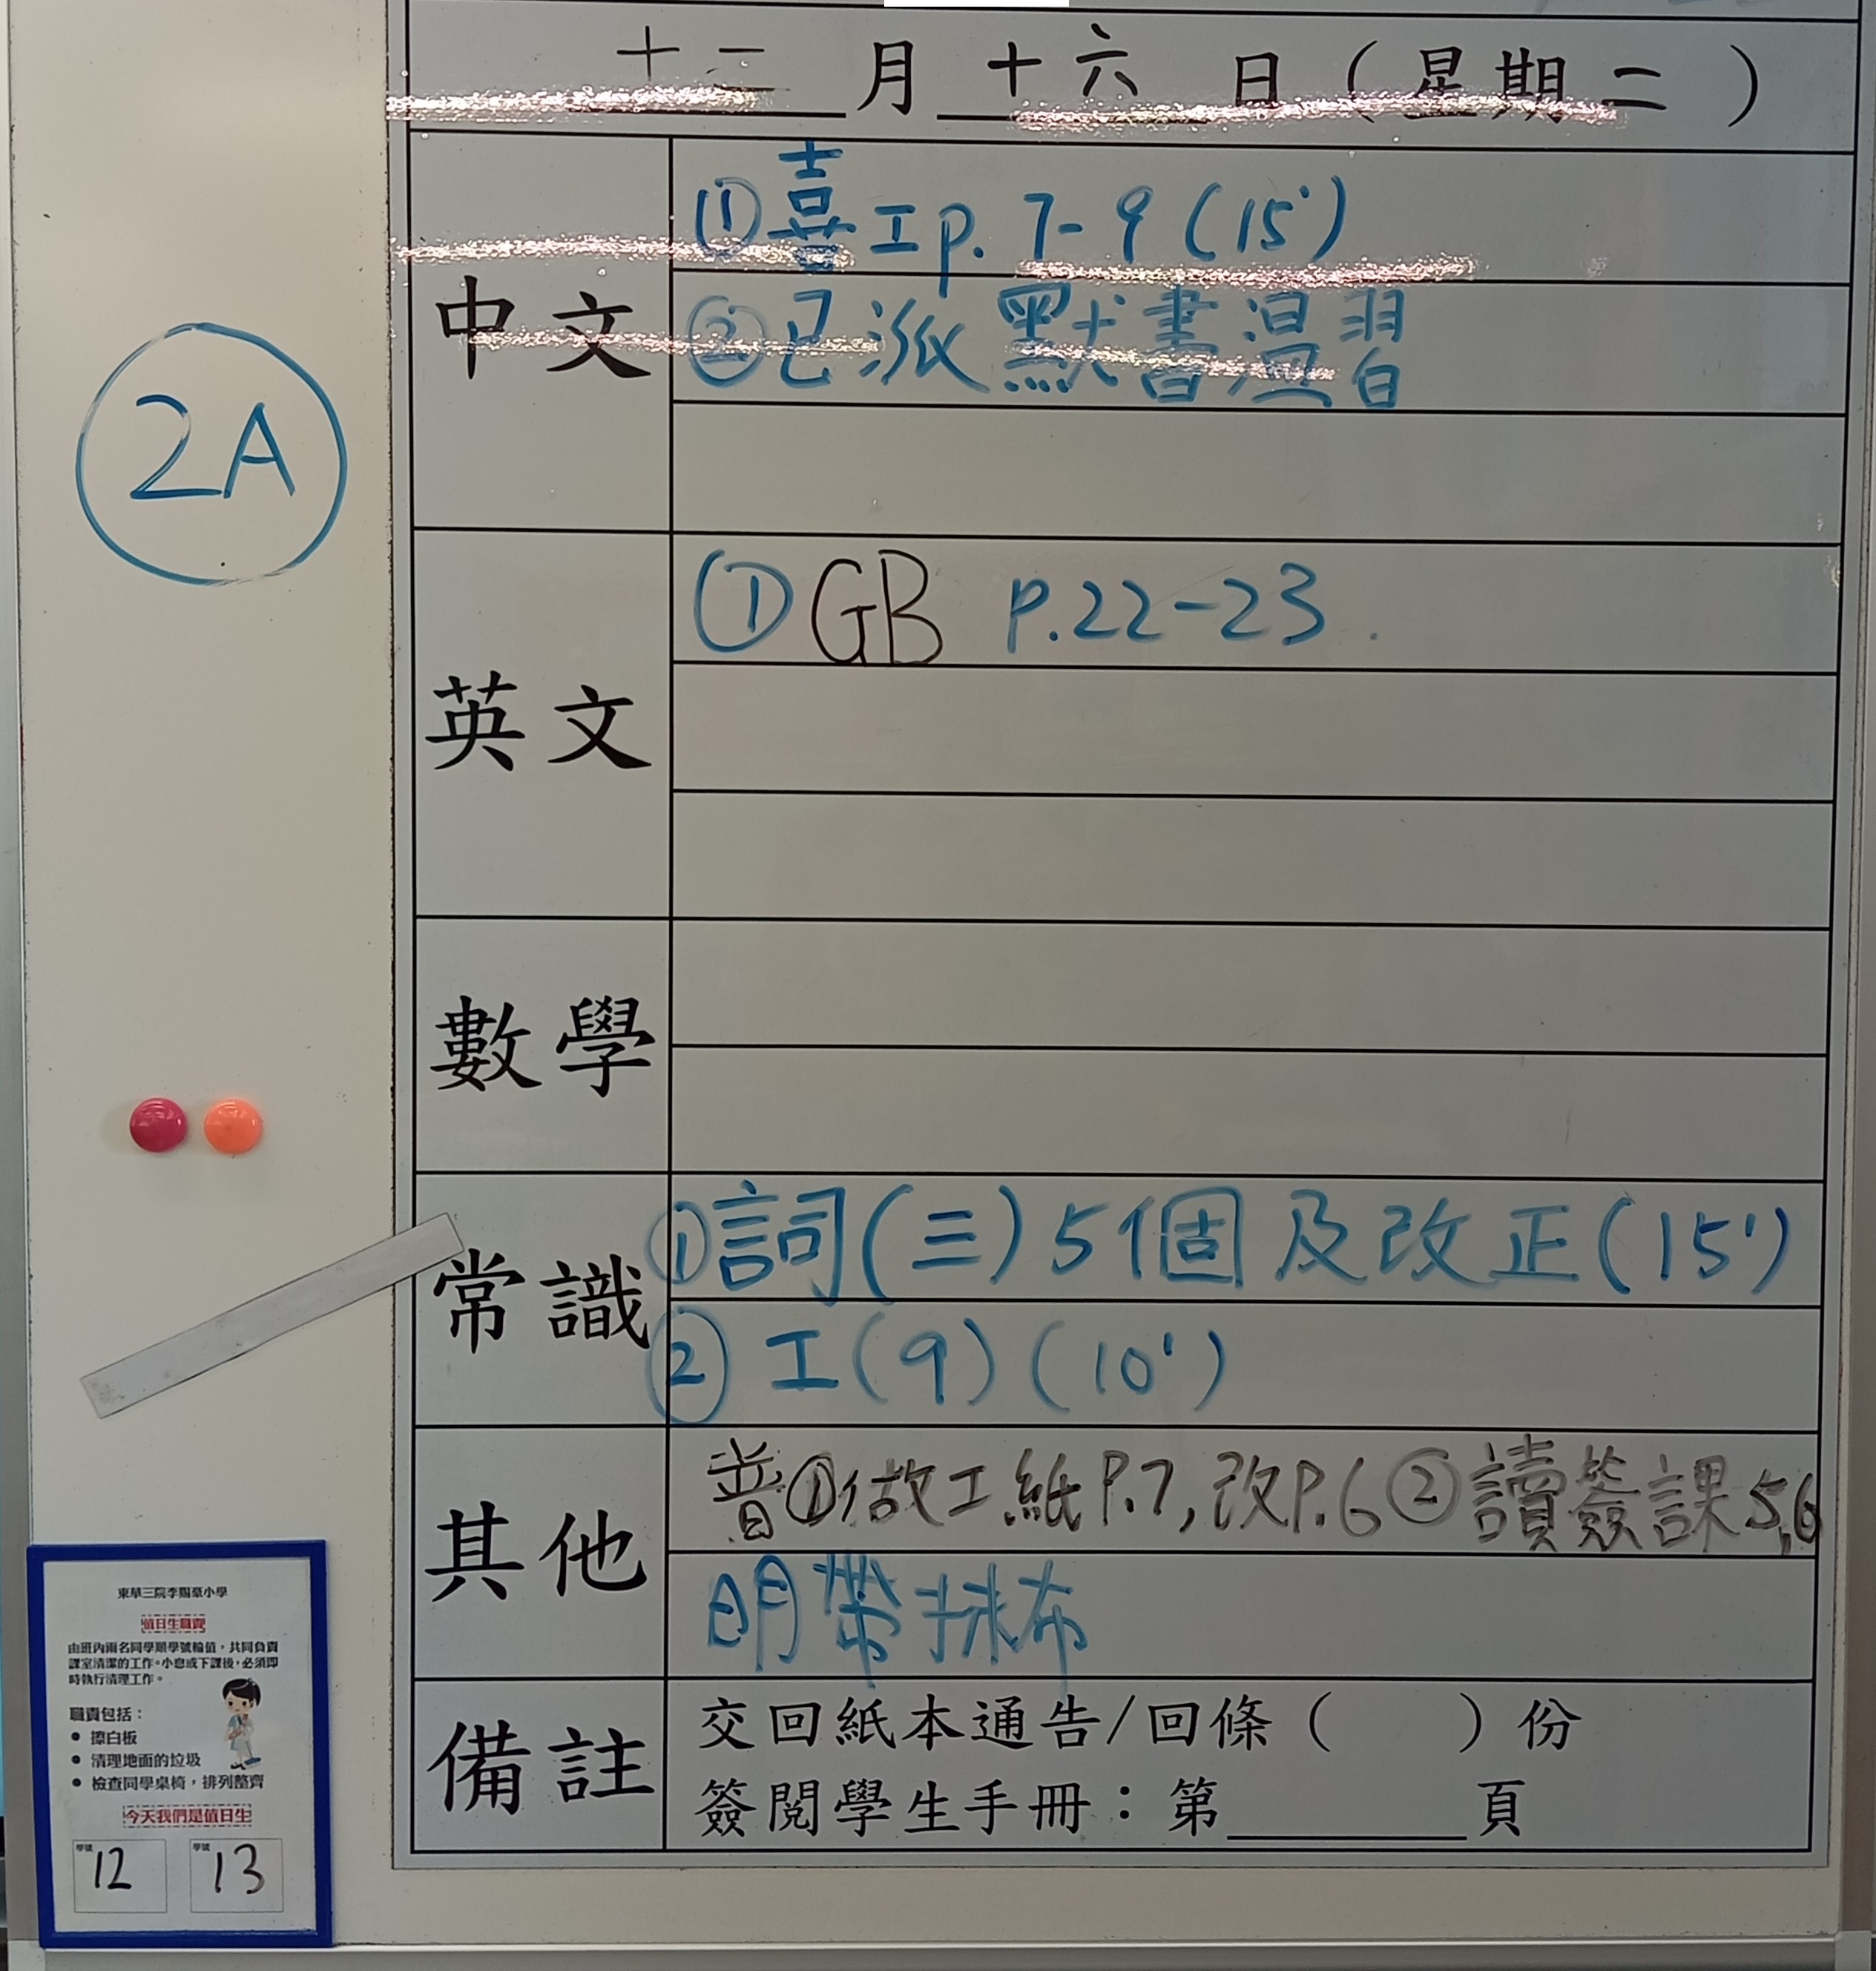 十二月十六日(星期二)
中文
①喜工p.7-9(15')
②已派默書溫習
2A
英文
①GB P.22-23
數學
常識
①詞(三)5個及改正(15')
②工(9)(10')
其他
普①做工紙P.7,改P.6②讀簽課5,6
明帶抹布
備註
交回紙本通告/回條( )份
簽閱學生手冊:第____頁
東華三院李賜豪小學
值日生職責
由班內兩名同學順學號輪值,共同負責
課室清潔的工作。小息或下課後,必須即
時執行清理工作。
職責包括:
• 擦白板
• 清理地面的垃圾
• 檢查同學桌椅,排列整齊
今天我們是值日生
學號 12
學號 13